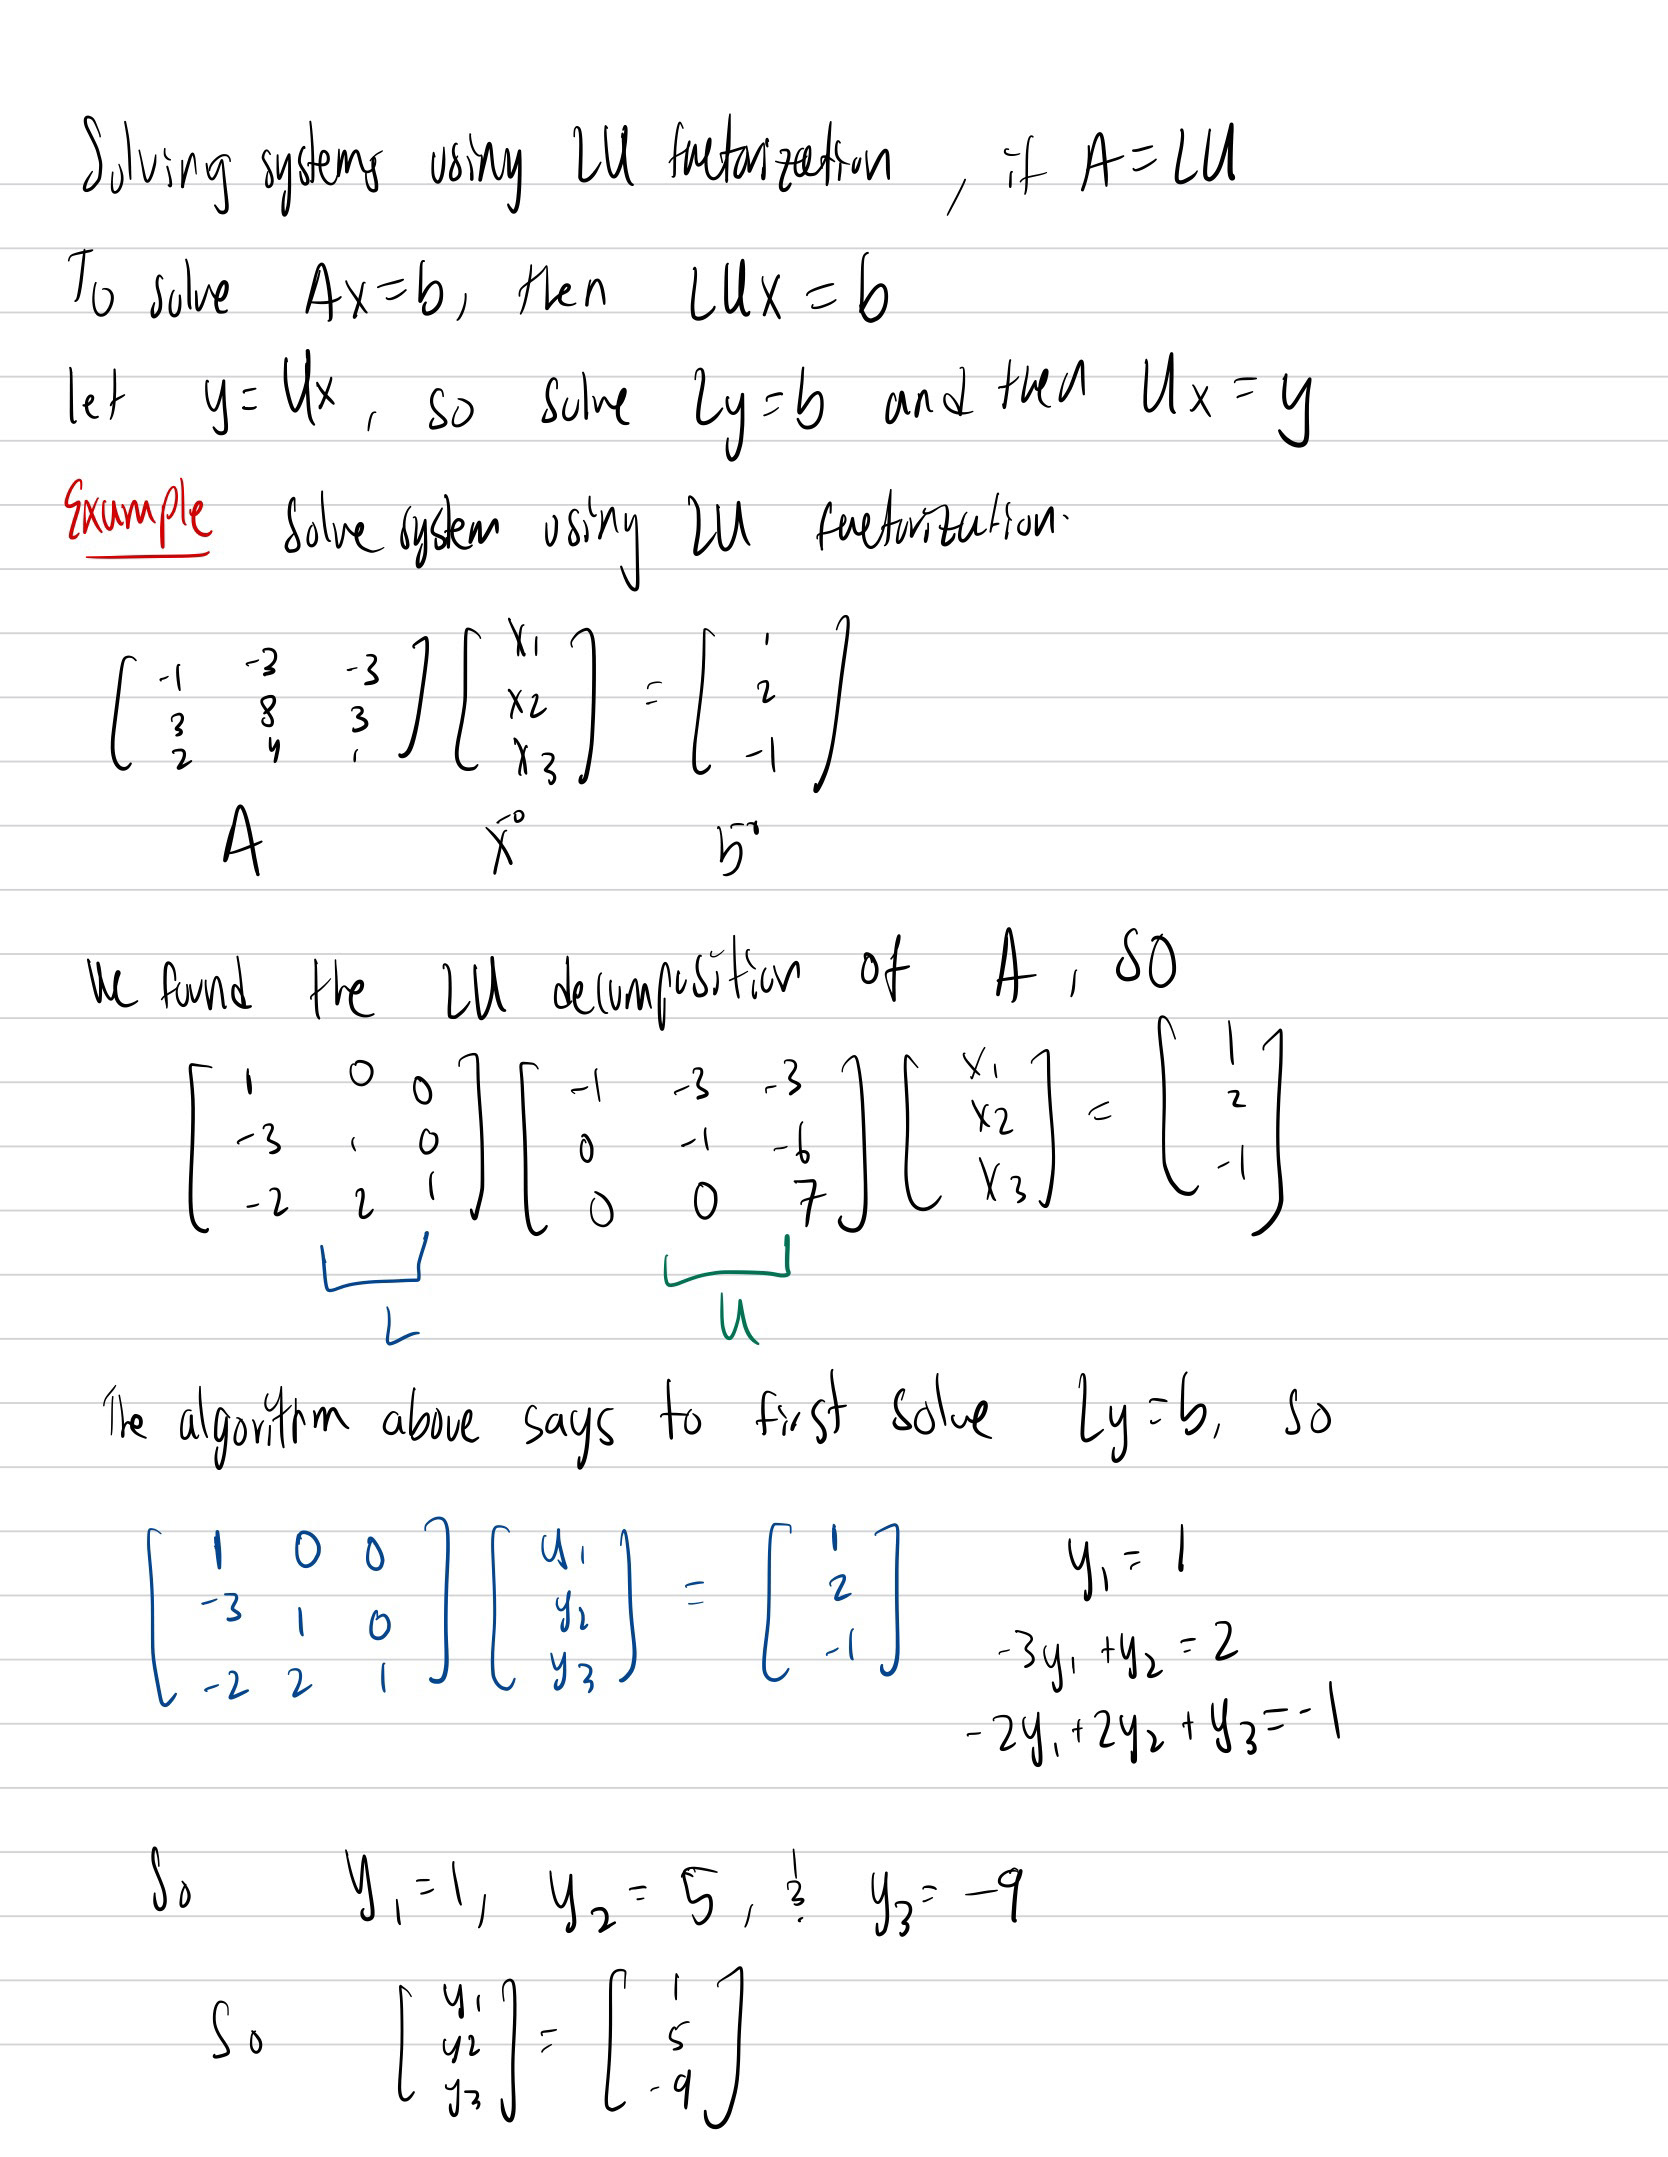 Solving systems using LU factorization, if A=LU
To solve Ax=b, then LUx=b
let y=Ux, so solve Ly=b and then Ux=y
Example Solve system using LU factorization.
[-1 -3 -3; 3 8 3; 2 4 1] [x1; x2; x3] = [1; 2; -1]
A x⃗ b⃗
We found the LU decomposition of A, so
[1 0 0; -3 1 0; -2 2 1] [-1 -3 -3; 0 -1 -6; 0 0 7] [x1; x2; x3] = [1; 2; -1]
L U
The algorithm above says to first solve Ly=b, so
[1 0 0; -3 1 0; -2 2 1] [y1; y2; y3] = [1; 2; -1]
y1 = 1
-3y1 + y2 = 2
-2y1 + 2y2 + y3 = -1
So y1=1, y2=5, & y3=-9
So [y1; y2; y3] = [1; 5; -9]